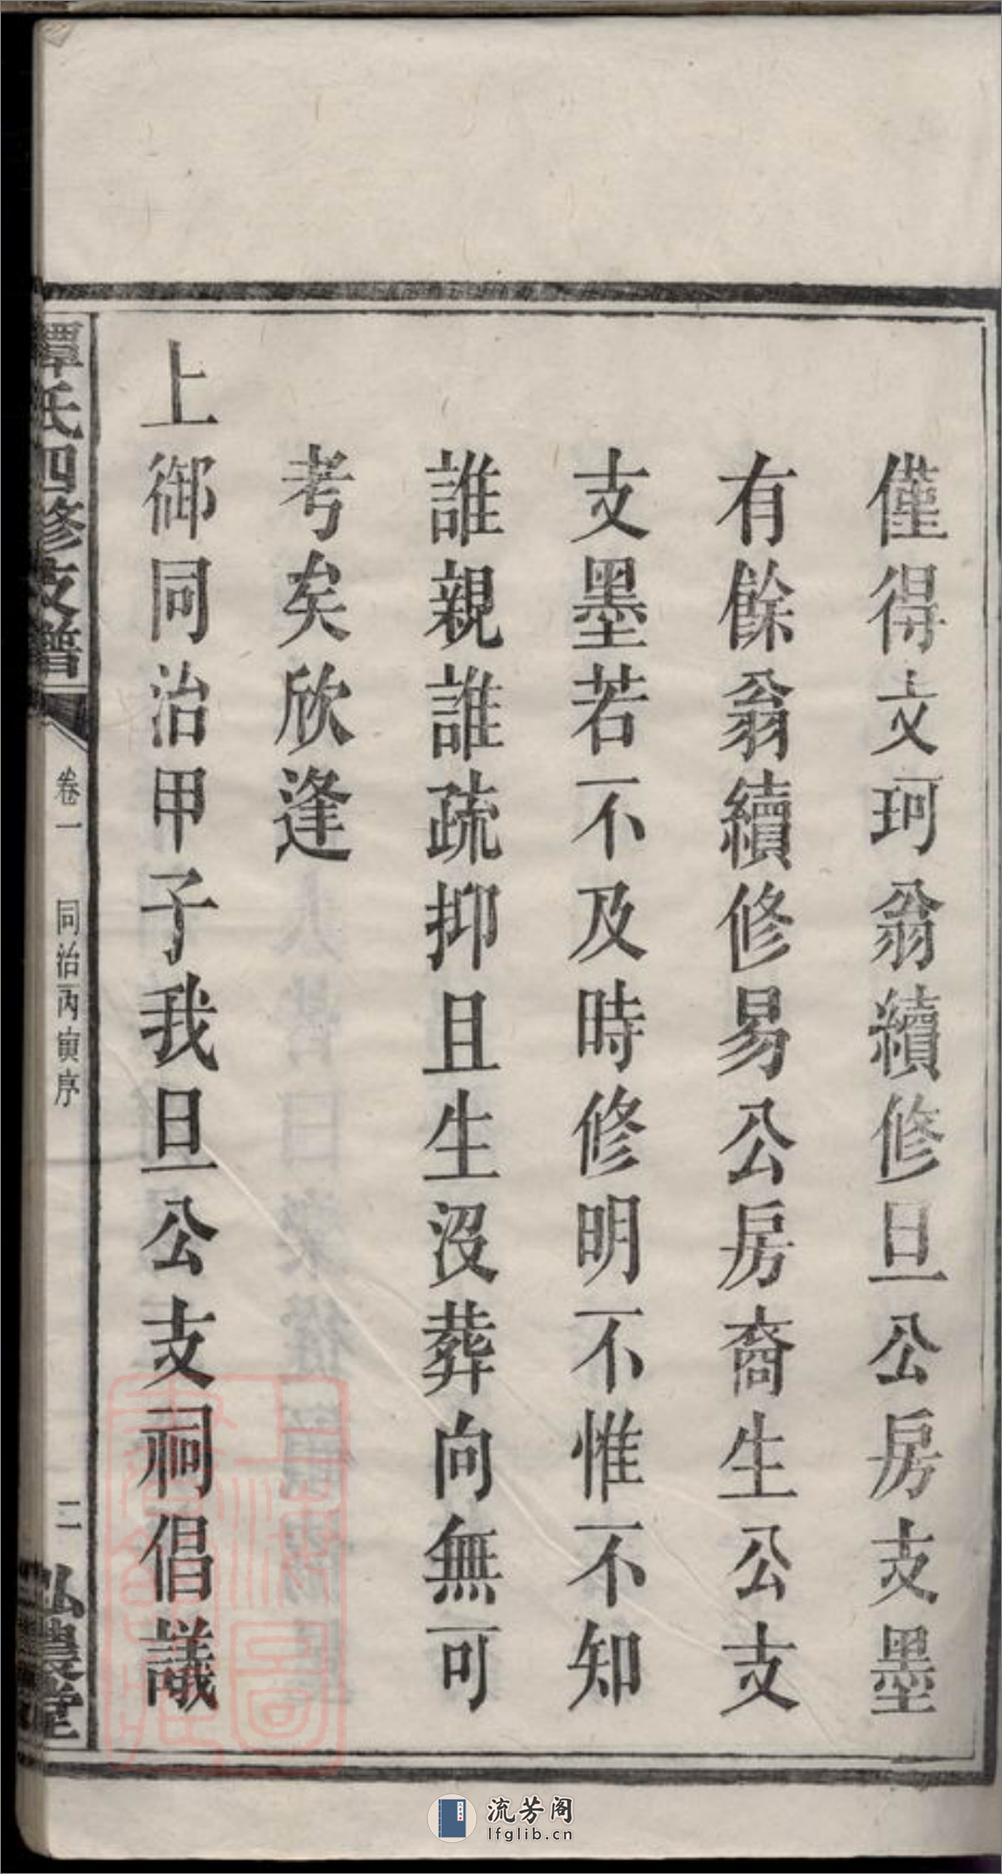 僅得文珂翁續修旦公房支墨
有餘翁續修易公房裔生公支
支墨若不及時修明不惟不知
誰親誰疏抑且生沒葬向無可
考矣欣逢
上御同治甲子我旦公支祠倡議
譚氏四修支譜
卷一
同治丙寅序
二
弘農堂
流芳阁
lfglib.cn